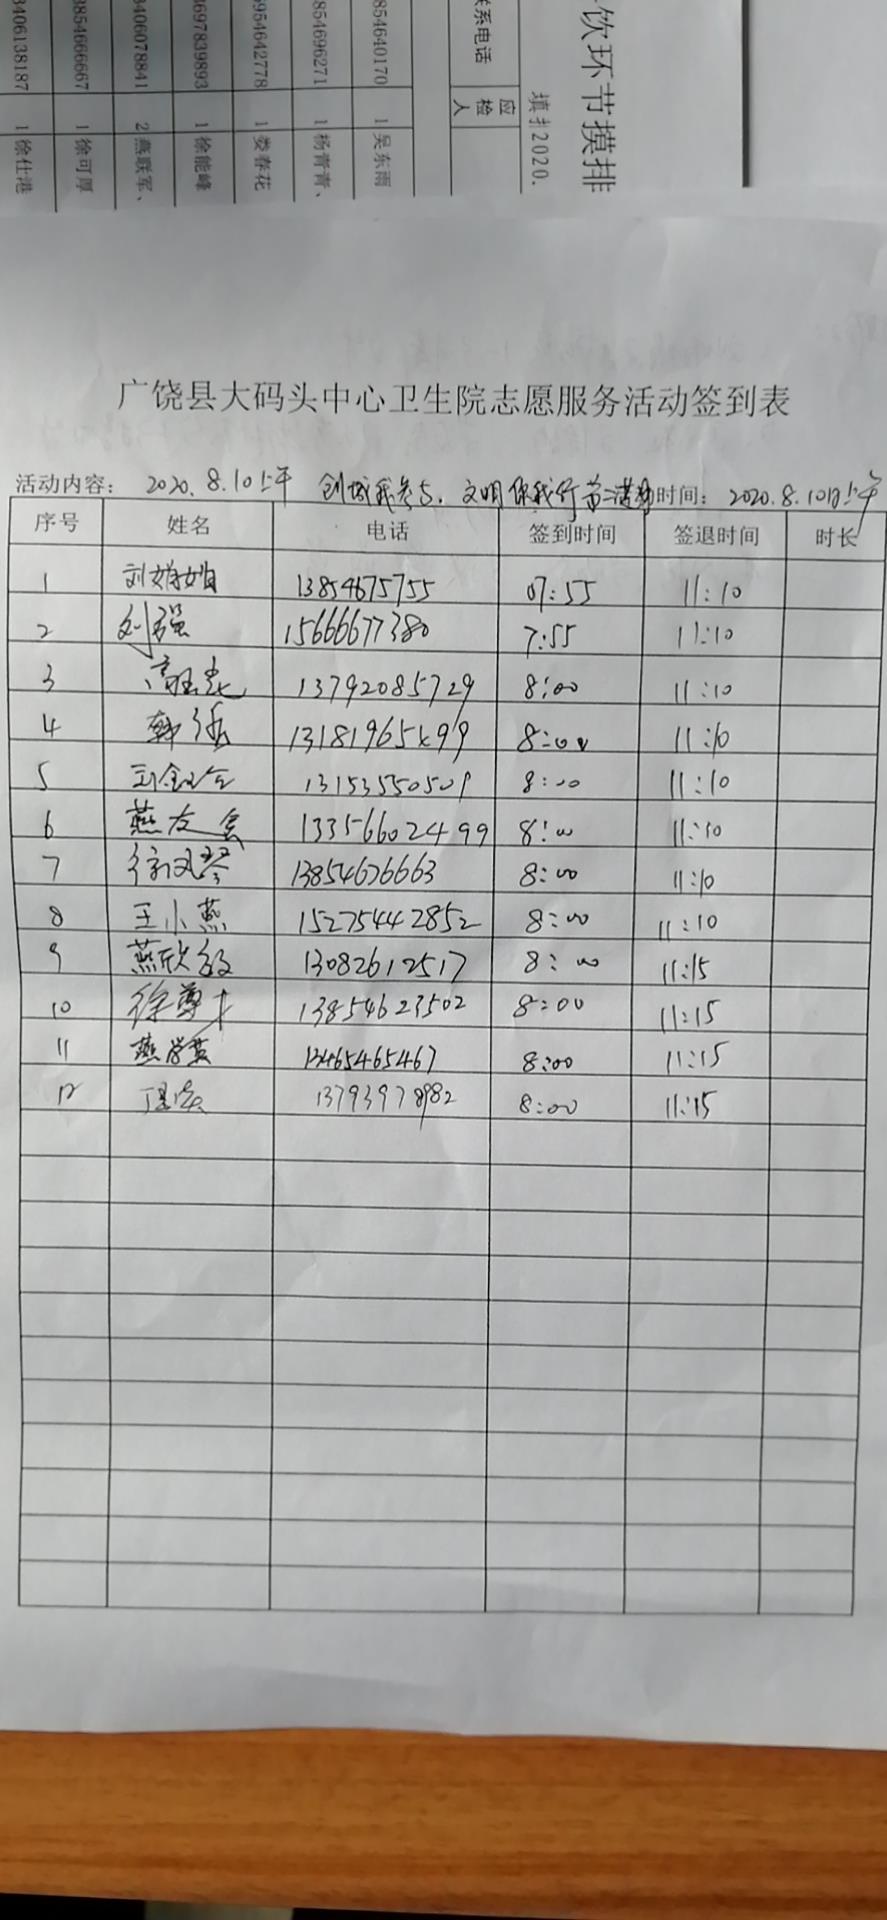 联系电话
应检人
填 2020.
饮环节摸排
854640170 1 吴东雨
854696271 1 杨青青、
9954642778 1 娄春花
3697839893 1 徐能峰
3406078841 2 燕联军、
3854666667 1 徐可厚
3406138187 1 徐仕港
广饶县大码头中心卫生院志愿服务活动签到表
活动内容: 2020.8.10上午 创城我参与,文明你我行 时间: 2020.8.10日上午
序号 姓名 电话 签到时间 签退时间 时长
1 刘娟娟 13854675755 07:55 11:10
2 刘强 15666677380 7:55 11:10
3 13792085729 8:00 11:10
4 8:00 11:10
5 13153550509 8:00 11:10
6 燕友会 13356602499 8:00 11:10
7 徐凤琴 13854676663 8:00 11:10
8 王小燕 15275442852 8:00 11:10
9 13082612517 8:00 11:15
10 13854623502 8:00 11:15
11 燕学英 13465465467 8:00 11:15
12 13793978982 8:00 11:15